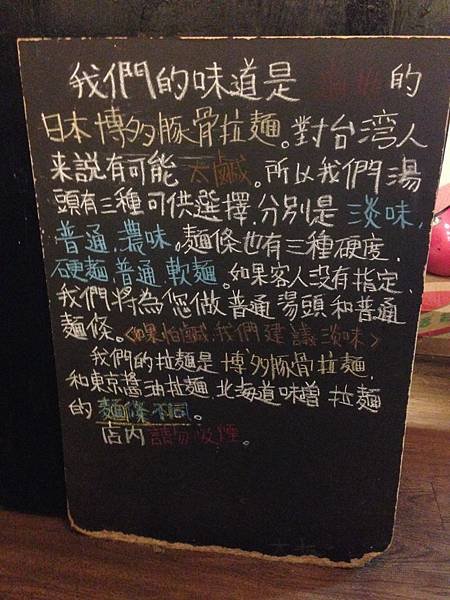 我們的味道是 的
日本博多豚骨拉麵。對台湾人
来説有可能太鹹。所以我們湯
頭有三種可供選擇,分別是淡味,
普通,濃味。麵條也有三種硬度,
硬麵,普通,軟麵。如果客人沒有指定,
我們將為您做普通湯頭和普通
麵條。<如果怕鹹,我們建議:淡味>
我們的拉麵是博多豚骨拉麵,
和東京醬油拉麵,北海道味噌拉麵
的麵條不同。
店内請勿吸煙。